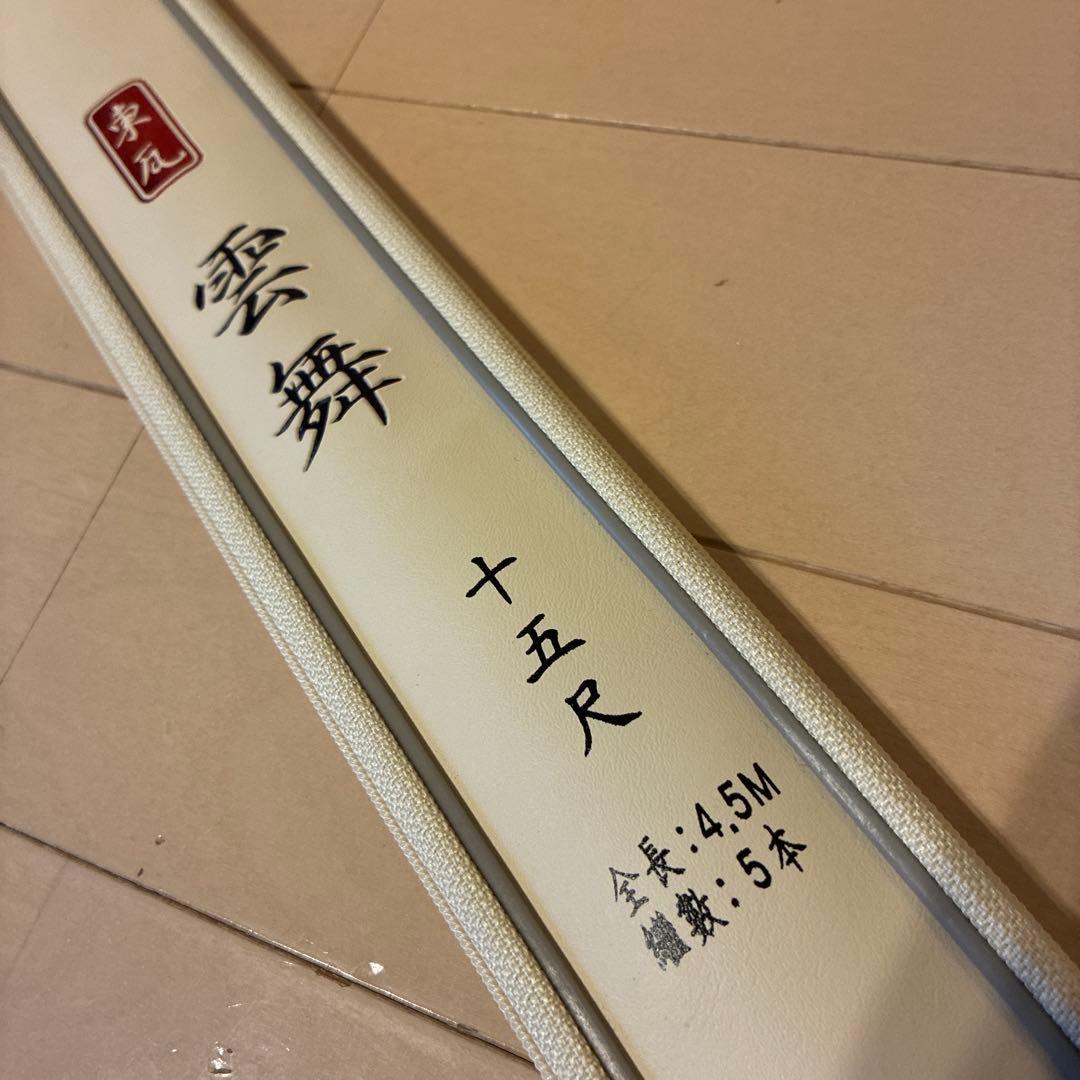 東風
雲舞
十五尺
全長：4.5M
繼數：5本